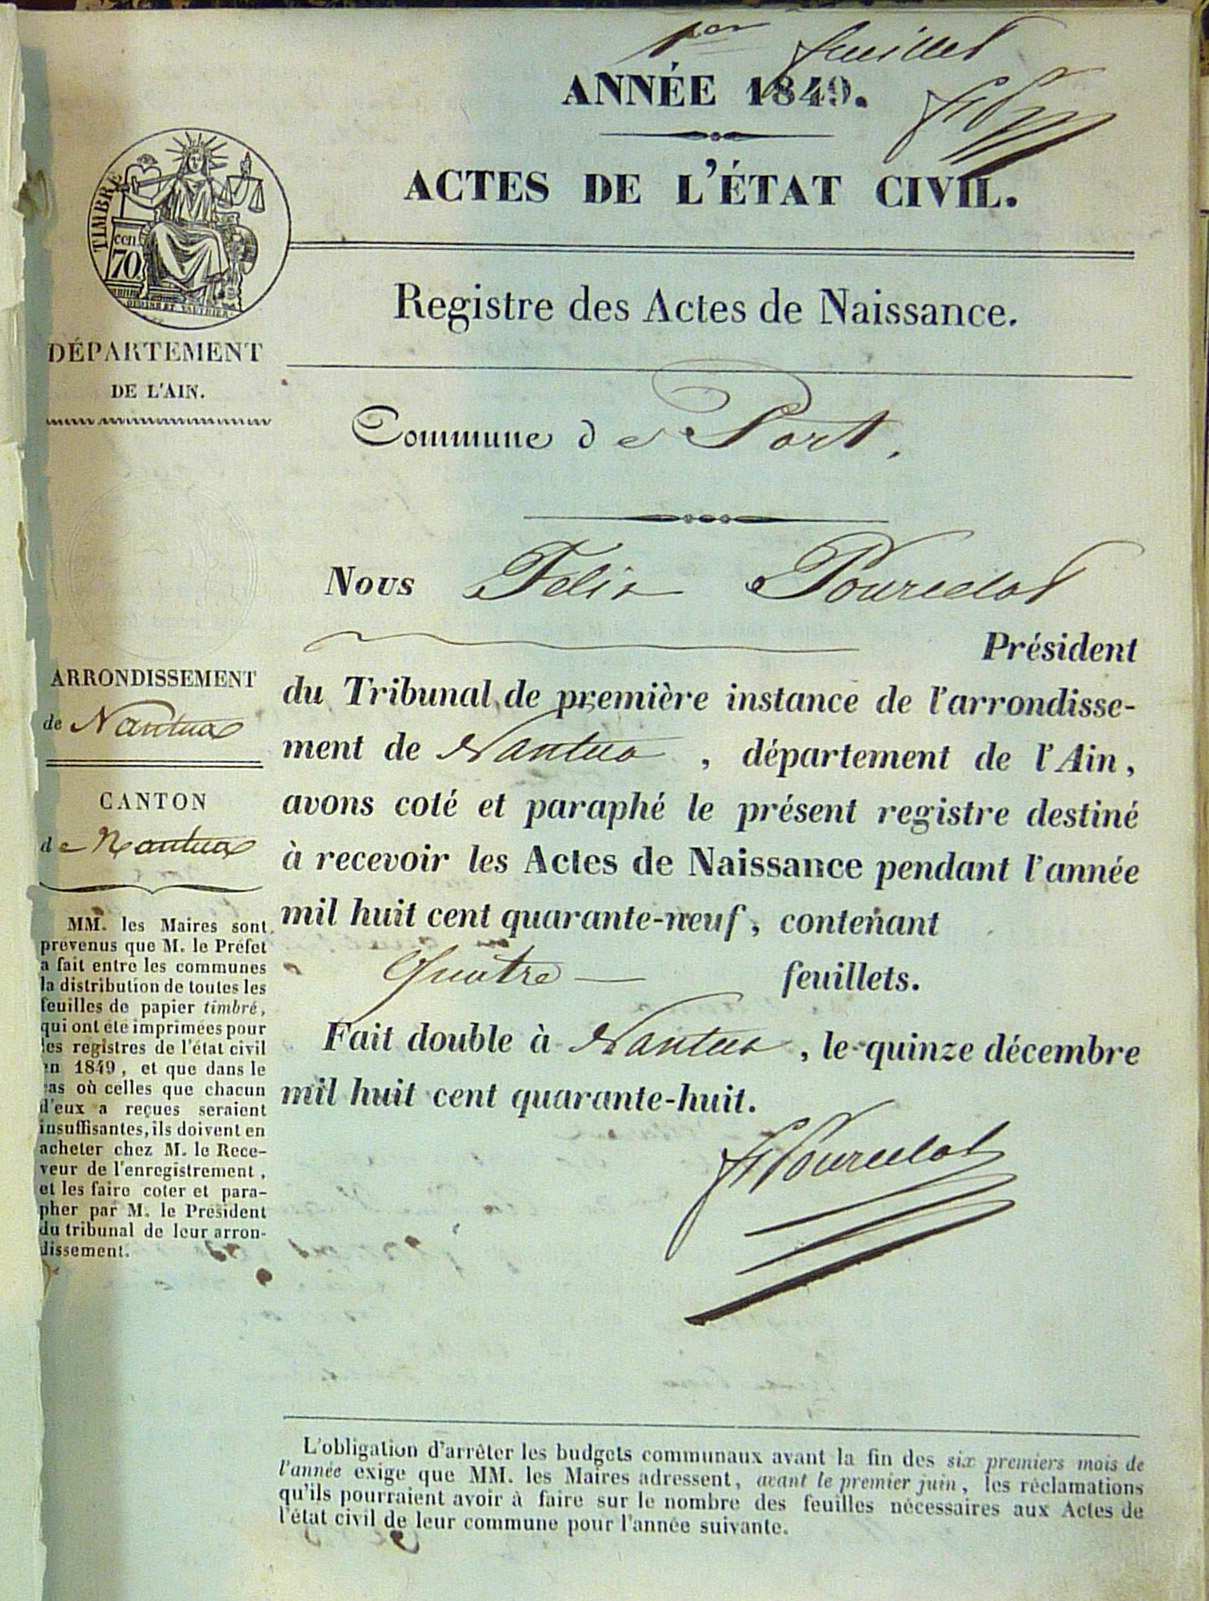 1er feuillet
ANNÉE 1849.
ACTES DE L'ÉTAT CIVIL.
TIMBRE
cen.
70
Registre des Actes de Naissance.
DÉPARTEMENT
DE L'AIN.
Commune de Port.
Nous Felix Pourcelot
Président
du Tribunal de première instance de l'arrondisse-
ment de Nantua, département de l'Ain,
avons coté et paraphé le présent registre destiné
à recevoir les Actes de Naissance pendant l'année
mil huit cent quarante-neuf, contenant
Quatre feuillets.
Fait double à Nantua, le quinze décembre
mil huit cent quarante-huit.
FPourcelot
ARRONDISSEMENT
de Nantua
CANTON
de Nantua
MM. les Maires sont
prévenus que M. le Préfet
a fait entre les communes
la distribution de toutes les
feuilles de papier timbré,
qui ont été imprimées pour
les registres de l'état civil
en 1849, et que dans le
cas où celles que chacun
d'eux a reçues seraient
insuffisantes, ils doivent en
acheter chez M. le Rece-
veur de l'enregistrement,
et les faire coter et para-
pher par M. le Président
du tribunal de leur arron-
dissement.
L'obligation d'arrêter les budgets communaux avant la fin des six premiers mois de
l'année exige que MM. les Maires adressent, avant le premier juin, les réclamations
qu'ils pourraient avoir à faire sur le nombre des feuilles nécessaires aux Actes de
l'état civil de leur commune pour l'année suivante.